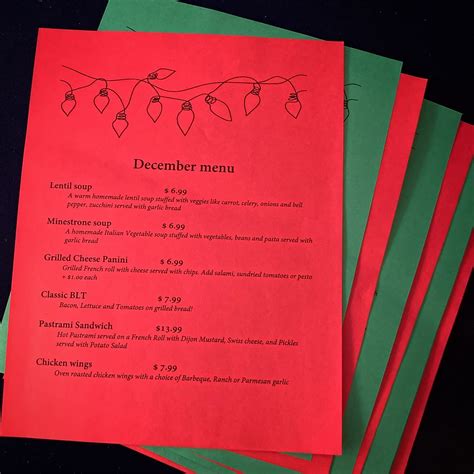 December menu
Lentil soup $ 6.99
A warm homemade lentil soup stuffed with veggies like carrot, celery, onions and bell
pepper, zucchini served with garlic bread
Minestrone soup $ 6.99
A homemade Italian Vegetable soup stuffed with vegetables, beans and pasta served with
garlic bread
Grilled Cheese Panini $ 6.99
Grilled French roll with cheese served with chips. Add salami, sundried tomatoes or pesto
+ $1.00 each
Classic BLT $ 7.99
Bacon, Lettuce and Tomatoes on grilled bread!
Pastrami Sandwich $13.99
Hot Pastrami served on a French Roll with Dijon Mustard, Swiss cheese, and Pickles
served with Potato Salad
Chicken wings $ 7.99
Oven roasted chicken wings with a choice of Barbeque, Ranch or Parmesan garlic